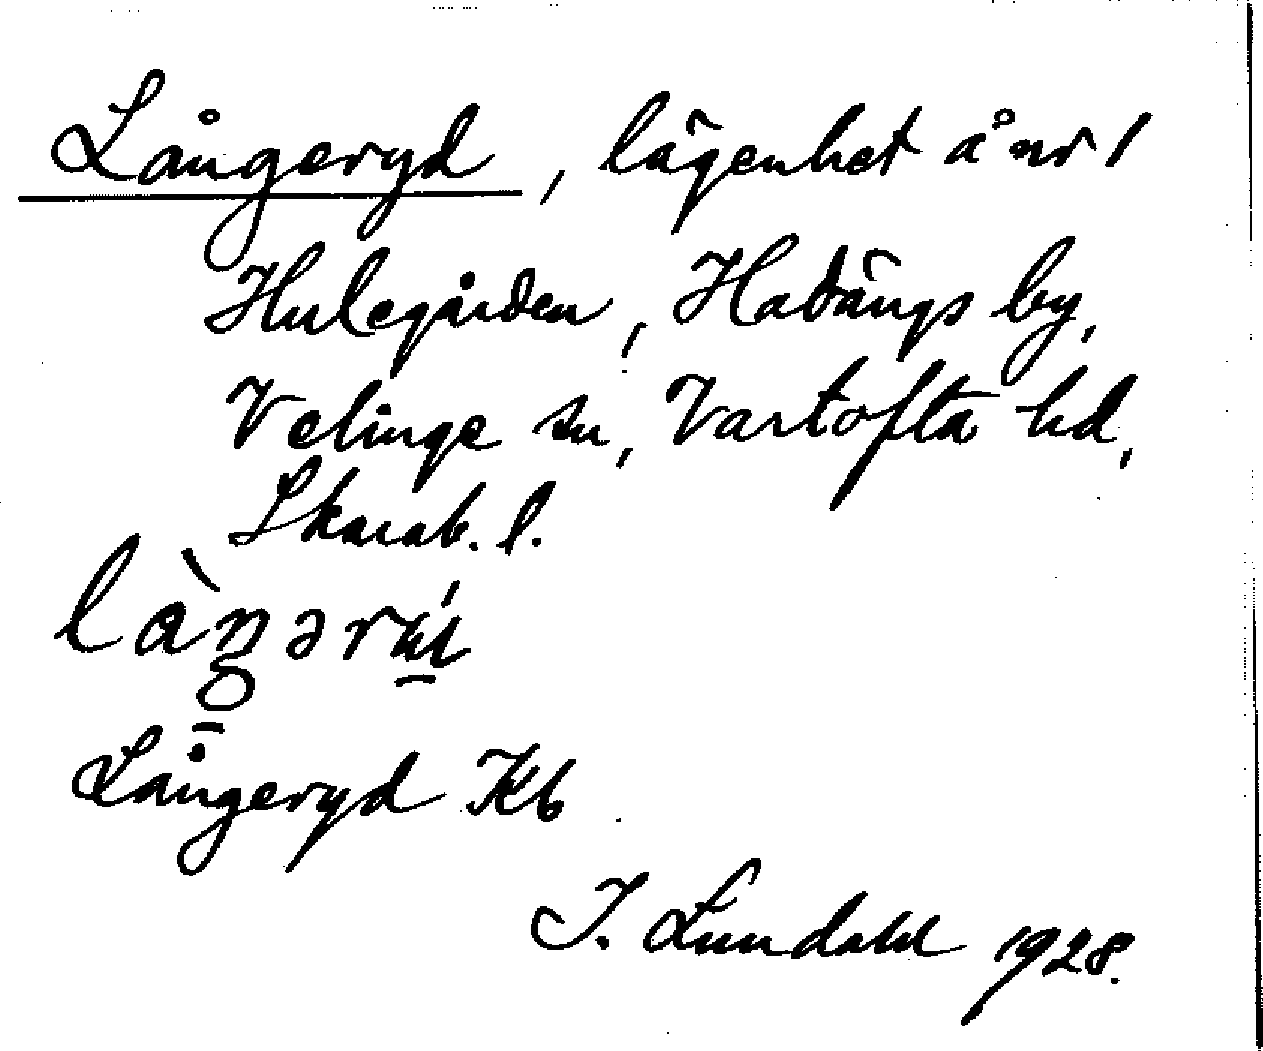 Långeryd, lägenhet å nr 1
Hulegården, Habängs by,
Velinge sn, Vartofta hd,
Skarab. l.
Långeryd Kb
I. Lundahl 1928.